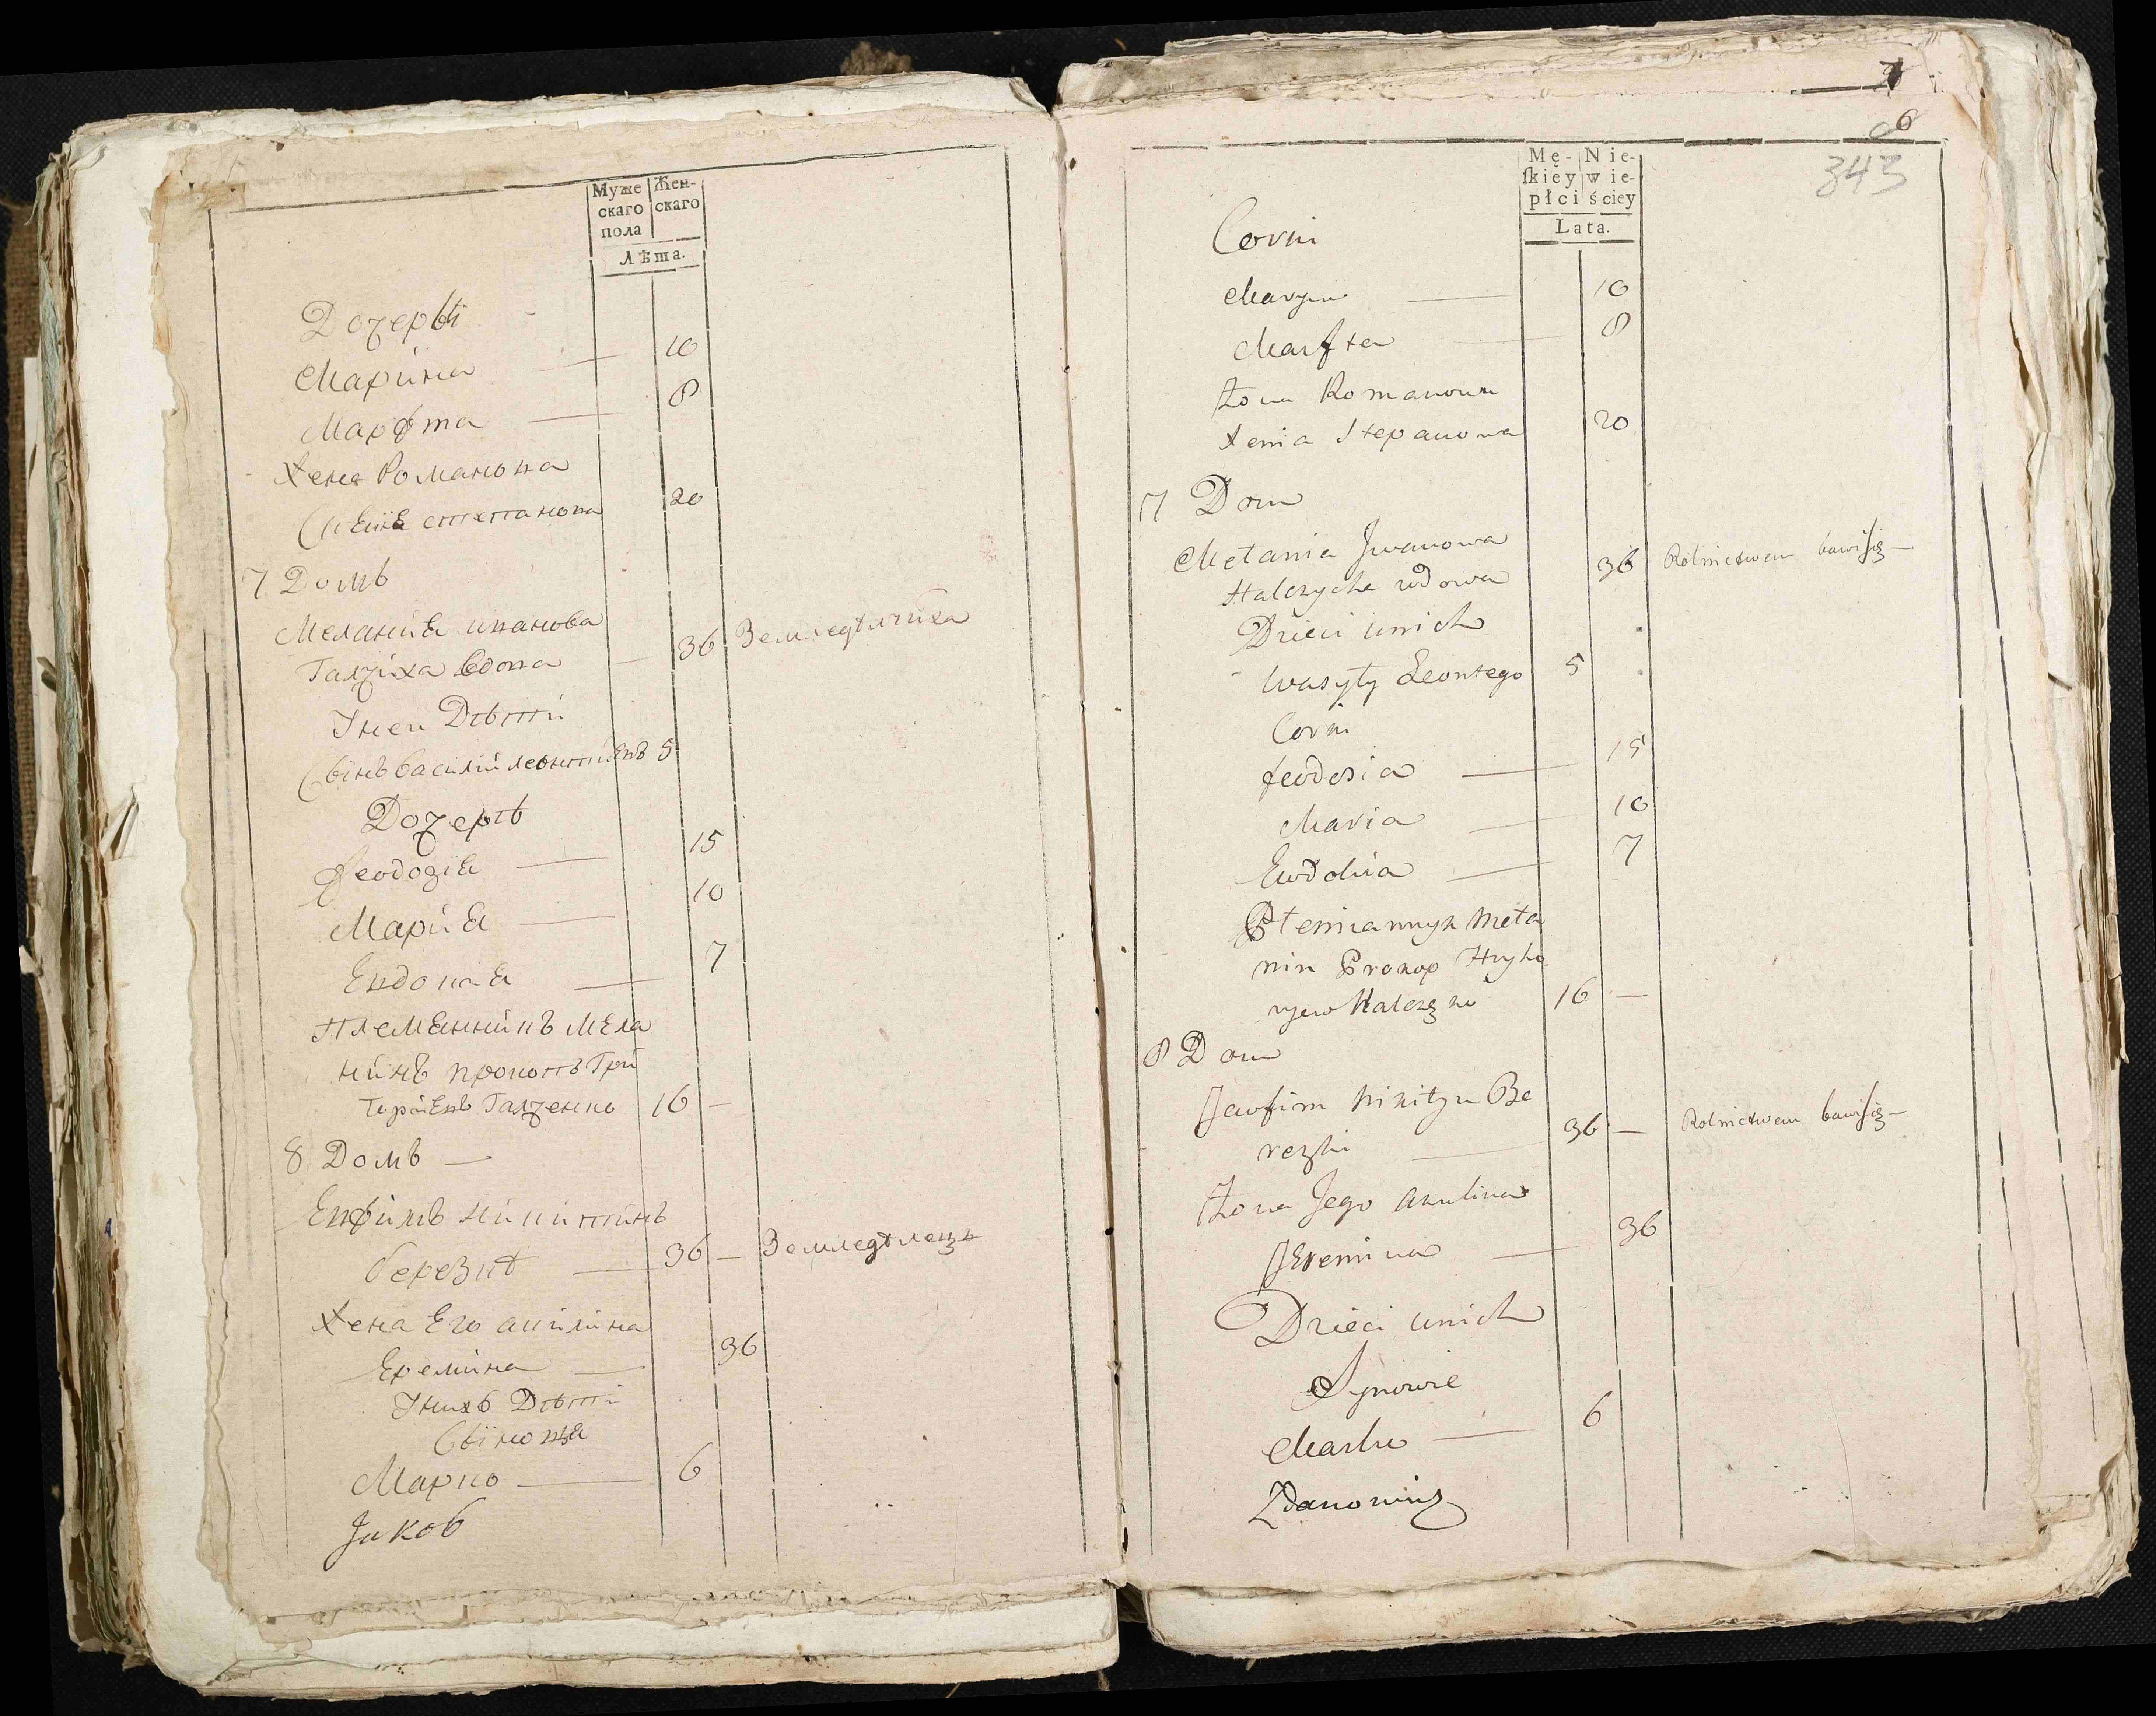 Муже
скаго
пола
Жен-
скаго
Лѣта.
Дочеры
Марина — 10
Марфта — 8
Жена Романова
степанова 20
7 Домъ
Меланиа иванова
Галчиха вдова — 36 Земледѣлчиха
У неи Дѣти
Сынъ василий леонтиевъ 5
Дочерѣ
Феодозиа — 15
Мариа — 10
Евдокиа — 7
Племянникъ Мела
нинъ прокопъ Гри
гориевъ Галченко 16 —
8 Домъ —
Евфимъ никитинъ
березкѣ — 36 — Земледѣлецъ
Жена Его акилина
Еремина — 36
У нихъ Дѣти
Сыновъа
Марко — 6
Jакоб
7
6
343
Mę-
ſkiey
płci
Nie-
wie-
ściey
Lata.
Corki
Maryna — 10
Marfta — 8
Żona Romanowa
Xenia Stepanowa 20
7 Dom
Mełania Jwanowa
Halczycha wdowa 36 Rolnictwem bawiſię —
Dzieci unich
Wasyły Leontego 5
Corki
feodosia — 15
Maria — 10
Ewdokia — 7
Plemiannyk Meła
nin Prokop Hryho
ryew Halczęko 16 —
8 Dom
Jewfim Nikityn Be
rezki — 36 — Rolnictwem bawiſię —
Żona Jego Akulina
Jeremina — 36
Dzieci unich
Synowie
Marko — 6
Zdanowicz